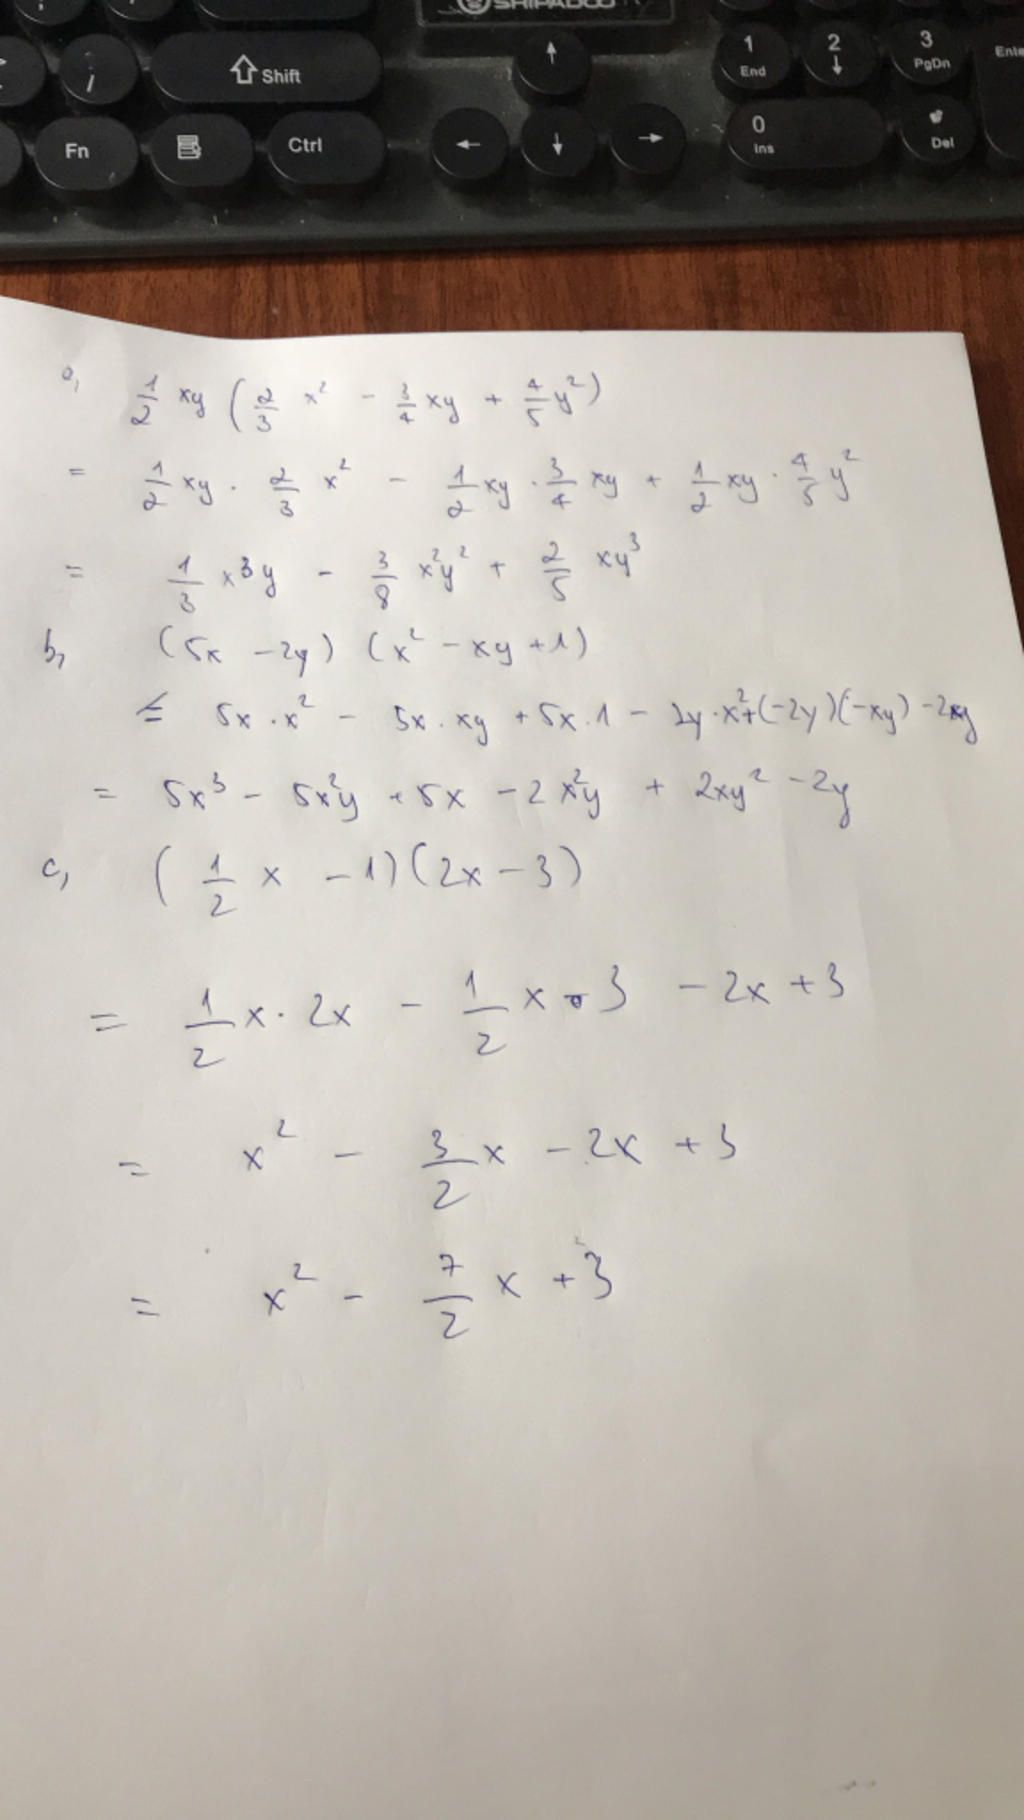 SHIPADOO
1 End 2 ↓ 3 PgDn Ente
⇧ Shift ↑
Fn Ctrl ← ↓ → 0 Ins Del
a, 1/2 xy (2/3 x² - 3/4 xy + 4/5 y²)
= 1/2 xy . 2/3 x² - 1/2 xy . 3/4 xy + 1/2 xy . 4/5 y²
= 1/3 x³y - 3/8 x²y² + 2/5 xy³
b, (5x - 2y) (x² - xy + 1)
= 5x . x² - 5x . xy + 5x . 1 - 2y . x² + (-2y)(-xy) - 2y
= 5x³ - 5x²y + 5x - 2x²y + 2xy² - 2y
c, (1/2 x - 1)(2x - 3)
= 1/2 x . 2x - 1/2 x . 3 - 2x + 3
= x² - 3/2 x - 2x + 3
= x² - 7/2 x + 3